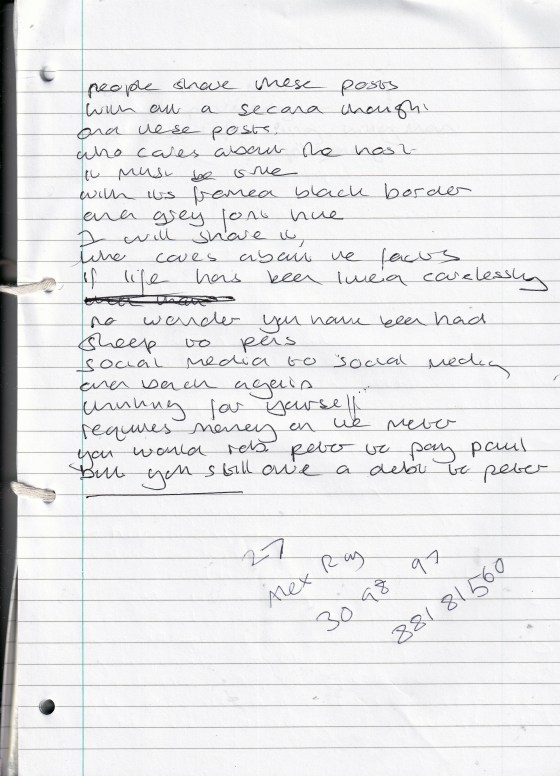 people share these posts
with out a second thought
and these posts.
who cares about the host
it must be true
with its framed black border
and grey font hue
I will share it,
who cares about the facts
if life has been lived carelessly
no wonder you have been had
sheep to pens
social media to social media
and back again
thinking for yourself
requires money on the meter
you would rob peter to pay paul
but you still owe a debt to peter
27
Alex Ray
30 98 97
881 81560